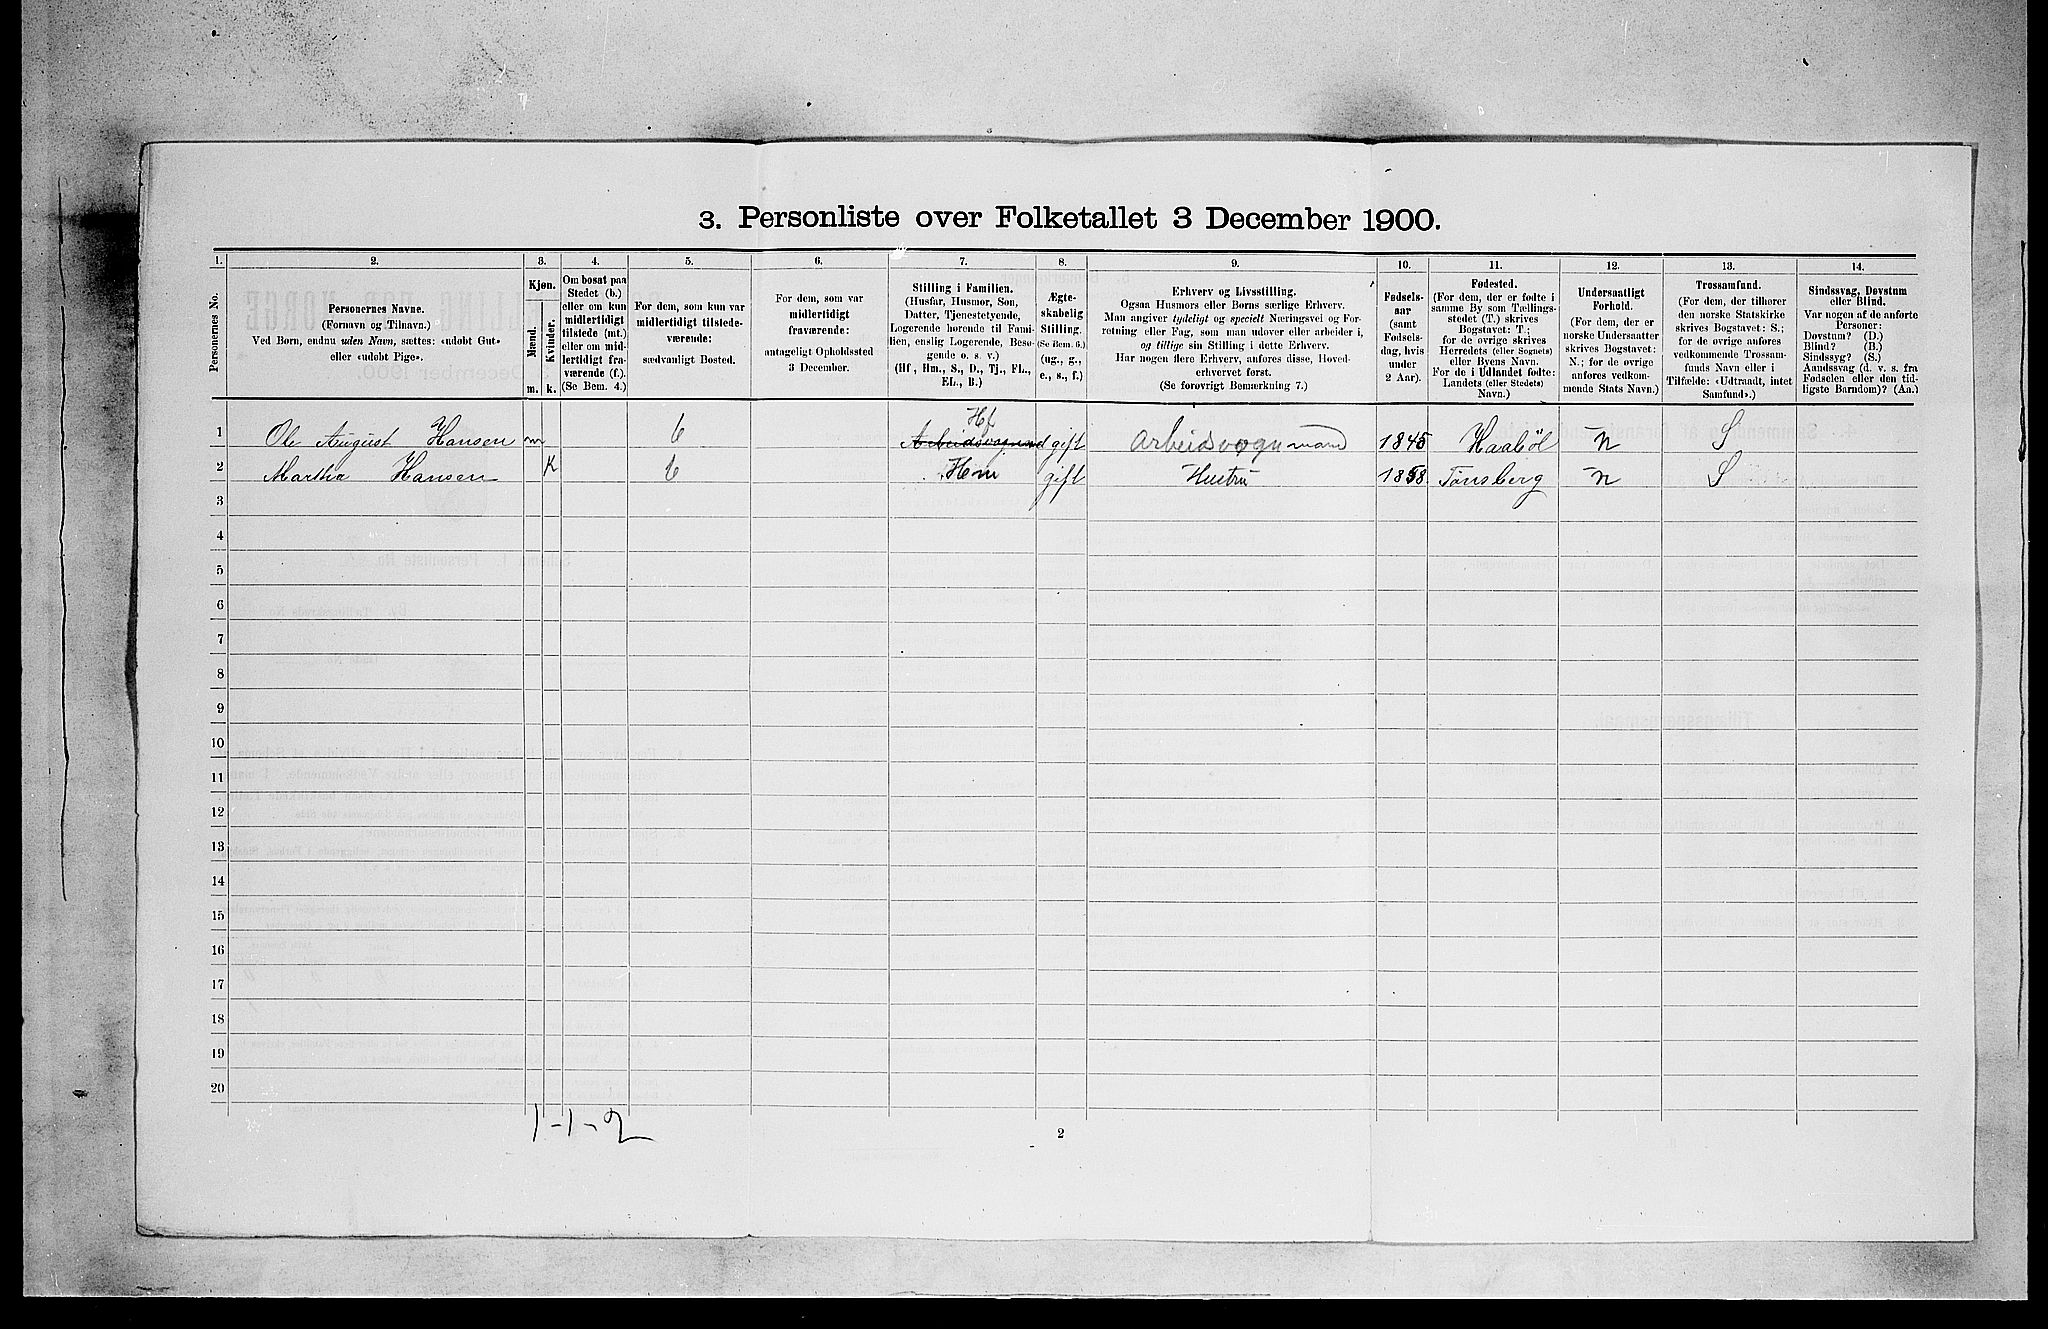 3. Personliste over Folketallet 3 December 1900.
1. 2. 3. 4. 5. 6. 7. 8. 9. 10. 11. 12. 13. 14.
Personernes No.
Personernes Navne.
(Fornavn og Tilnavn.)
Ved Børn, endnu uden Navn, sættes: «udøbt Gut»
eller «udøbt Pige».
Kjøn.
Mænd.
Kvinder.
m. k.
Om bosat paa
Stedet (b.)
eller om kun
midlertidigt
tilstede (mt.)
eller om mid-
lertidigt fra-
værende (f.).
(Se Bem. 4.)
For dem, som kun var
midlertidigt tilstede-
værende:
sædvanligt Bosted.
For dem, som var
midlertidigt
fraværende:
antageligt Opholdssted
3 December.
Stilling i Familien.
(Husfar, Husmor, Søn,
Datter, Tjenestetyende,
Logerende hørende til Fami-
lien, enslig Logerende, Besø-
gende o. s. v.)
(Hf, Hm., S., D., Tj., FL.,
EL., B.)
Ægte-
skabelig
Stilling.
(Se Bem. 6.)
(ug., g.,
e., s., f.)
Erhverv og Livsstilling.
Ogsaa Husmors eller Børns særlige Erhverv.
Man angiver tydeligt og specielt Næringsvei og For-
retning eller Fag, som man udover eller arbeider i,
og tillige sin Stilling i dette Erhverv.
Har nogen flere Erhverv, anføres disse, Hoved-
erhvervet først.
(Se forøvrigt Bemærkning 7.)
Fødsels-
aar
(samt
Fødsels-
dag, hvis
under
2 Aar).
Fødested.
(For dem, der er fødte i
samme By som Tællings-
stedet (T.) skrives
Bogstavet: T.;
for de øvrige skrives
Herredets (eller Sognets)
eller Byens Navn.
For de i Udlandet fødte:
Landets (eller Stedets)
Navn.)
Undersaatligt
Forhold.
(For dem, der er
norske Undersaatter
skrives Bogstavet:
N.; for de øvrige
anføres vedkom-
mende Stats Navn.)
Trossamfund.
(For dem, der tilhører
den norske Statskirke
skrives Bogstavet: S.;
for de øvrige anføres
vedkommende Trossam-
funds Navn eller i
Tilfælde: «Udtraadt, intet
Samfund».)
Sindssvag, Døvstum
eller Blind.
Var nogen af de anførte
Personer:
Døvstum? (D.)
Blind? (B.)
Sindssyg? (S.)
Aandssvag (d. v. s. fra
Fødselen eller den tid-
ligste Barndom)? (Aa.)
Hf
1 Ole August Hansen m Arbeidsvognmand gift Arbeidsvognmand 1845 Haabøl N S
2 Martha Hansen K Hm gift Hustru 1858 Tønsberg N S
3
4
5
6
7
8
9
10
11
12
13
14
15
16
17
18
19
20
1-1-2
2